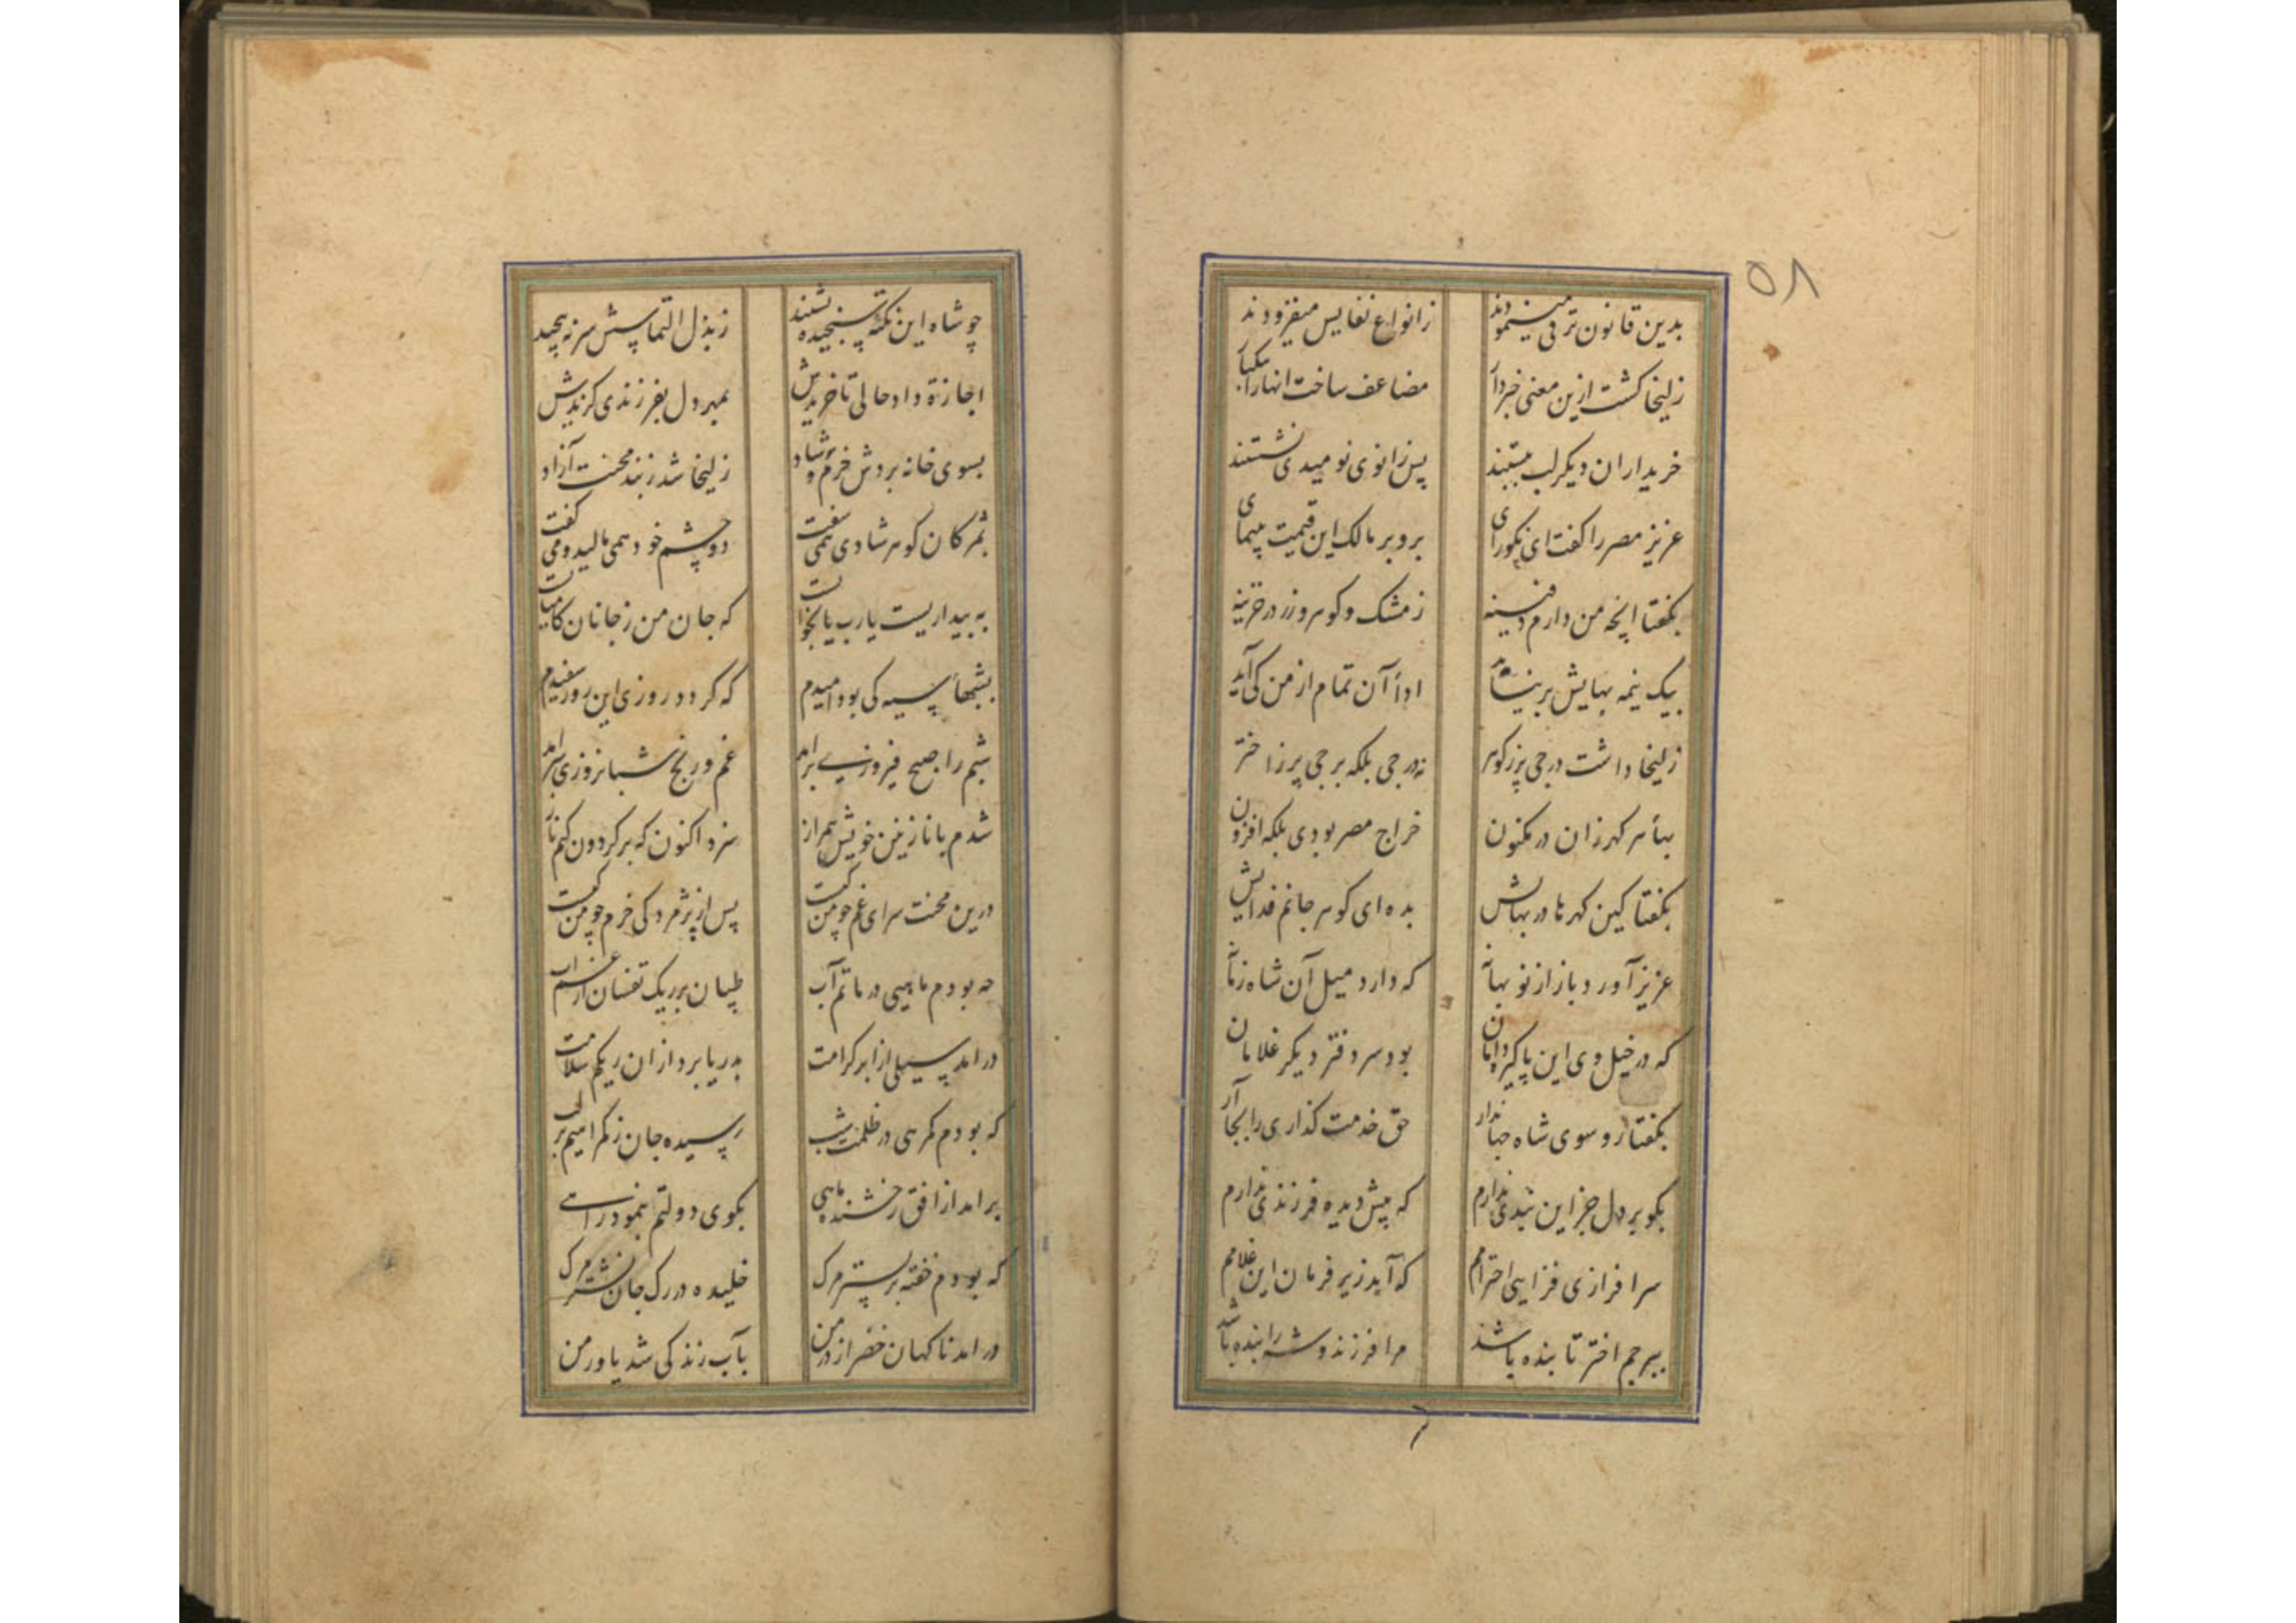 ۵۸
بدین قانون ترقی مینمودند زانواع نفایس میفزودند
زلیخا کشت ازین معنی خبردار مضاعف ساخت انها را بیکبار
خریداران دیکر لب ببستند پس زانوی نومیدی نشستند
عزیز مصر را کفت ای نکورای برو بر مالک این قیمت بپیمای
بکفتا آنچه من دارم دفینه ز مشک و کوهر و زر در خزینه
بیک نیمه بهایش بر نیاید ادأ آن تمام از من کی آید
زلیخا داشت درجی پر ز کوهر نه درجی بلکه برجی پر ز اختر
بهأ هر کهر زان در مکنون خراج مصر بودی بلکه افزون
بکفتا کین کهرها در بهایش بده ای کوهر جانم فدایش
عزیز آورد باز از نو بهانه که دارد میل آن شاه زمانه
که در خیل وی این پاکیزه دامان بود سر دفتر دیکر غلامان
بکفتا رو سوی شاه جهاندار حق خدمت کذاری را بجا آر
بکو بر دل جز این بندی ندارم که پیش دیده فرزندی ندارم
سرافرازی فزایی احترامم که آید زیر فرمان این غلامم
ببرجم اختر تابنده باشد مرا فرزند و شه را بنده باشد
چو شاه این نکته سنجیده بشنید ز بذل التماسش سر نه پیچید
اجازة داد حالی تا خریدش بمهر دل بفرزندی کزیدش
بسوی خانه بردش خرم و شاد زلیخا شد ز بند محنت آزاد
بمژکان کوهر شادی همی سفت دو چشم خود همی مالید و می کفت
به بیداریست یارب یا بخوابست که جان من ز جانان کامیابست
بشبهأ سیه کی بود امیدم که کردد روزی این روز سفیدم
شبم را صبح فیروزی برامد غم و رنج شبانروزی سرامد
شدم با نازنین خویش همراز سزد اکنون که بر کردون کنم ناز
درین محنت سرای غم چو من کیست پس از پژمردکی خرم چو من کیست
چه بودم ماهیی در ماتم آب طپان بر ریک تفسان از غم آب
درامد سیلی از ابر کرامت بدریا برد ازان ریکم سلامت
که بودم کمرهی در ظلمت شب رسیده جان ز کمراهیم بر لب
برامد از افق رخشنده ماهی بکوی دولتم بنمود راهی
که بودم خفته بر بستر مرک خلیده در رک جان نشتر مرک
درامد ناکهان خضر از در من بآب زندکی شد یاور من